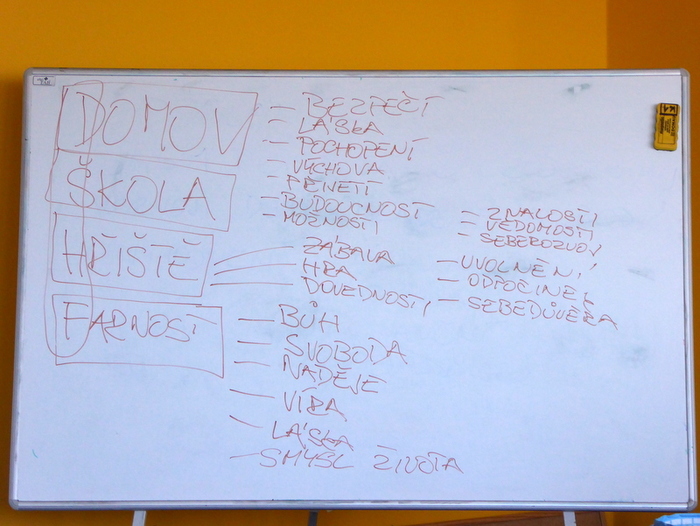 DOMOV
ŠKOLA
HŘIŠTĚ
FARNOST
– BEZPEČÍ
– LÁSKA
– POCHOPENÍ
– VÝCHOVA
– PENĚTI
– BUDOUCNOST
– MOŽNOSTI
– ZNALOSTI
– VĚDOMOSTI
– SEBEROZVOJ
ZÁBAVA
HRA
DOVEDNOSTI
– UVOLNĚNÍ
– ODPOČINEK
– SEBEDŮVĚRA
– BŮH
– SVOBODA
– NADĚJE
– VÍRA
– LÁSKA
– SMYSL ŽIVOTA